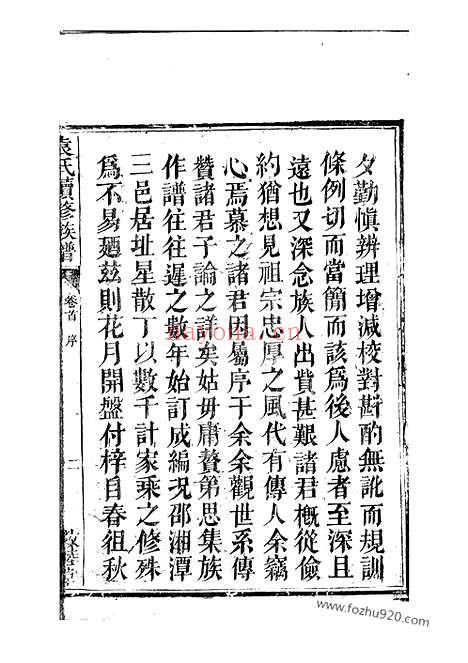 夕勤愼辨理增減校對斟酌無訛而規訓
條例切而當簡而該爲後人慮者至深且
遠也又深念族人出貲甚艱諸君槪從儉
約猶想見祖宗忠厚之風代有傳人余竊
心焉慕之諸君因屬序于余余觀世系傳
贊諸君子論之詳矣姑毋庸贅第思集族
作譜往往遲之數年始訂成編況邵湘潭
三邑居址星散丁以數千計家乘之修殊
爲不易廼茲則花月開盤付梓自春徂秋
袁氏續修族譜
卷首 序
二
haoyona.com
www.fozhu920.com